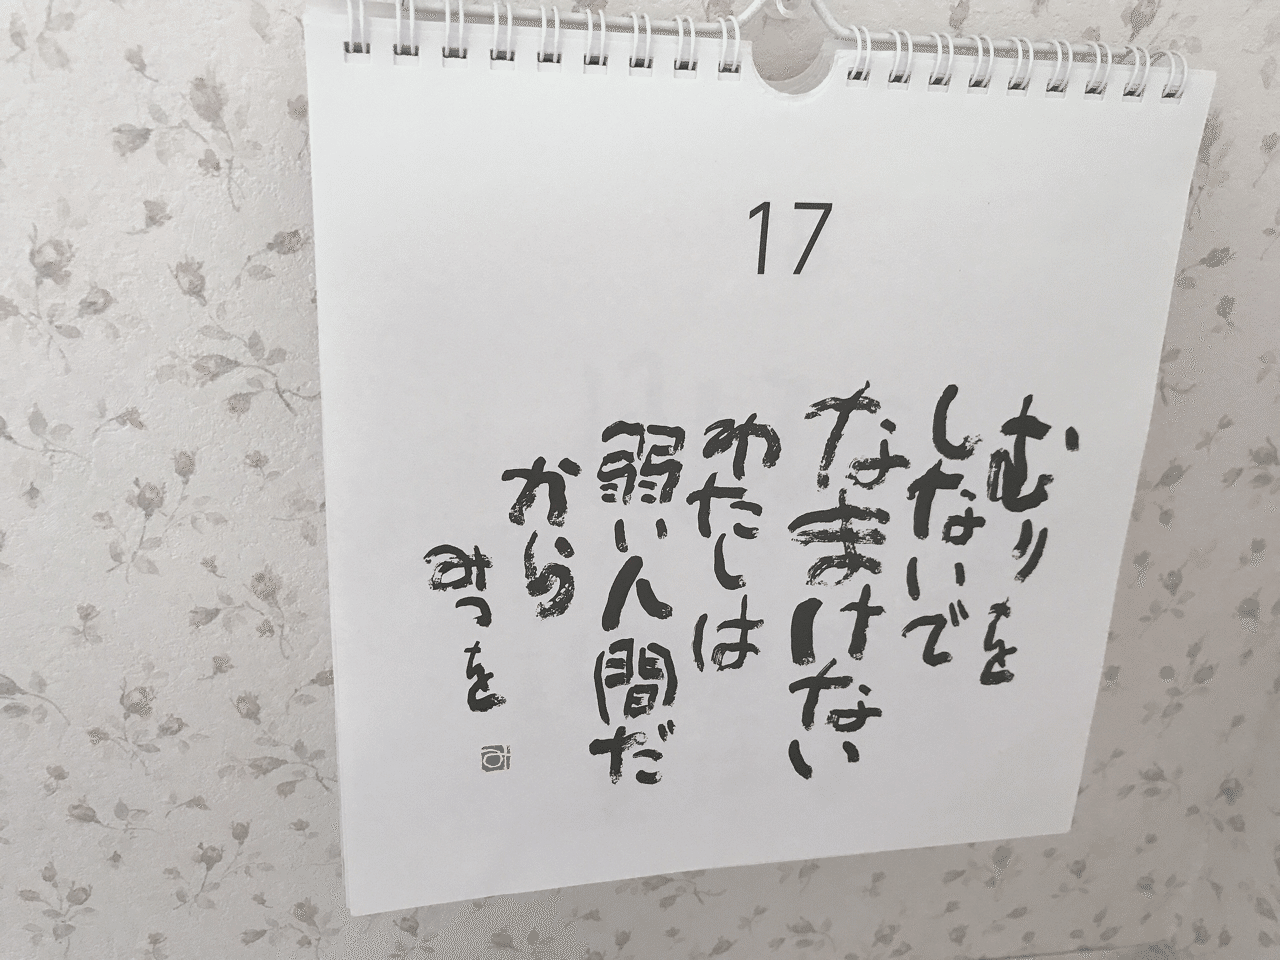 17
むりを
しないで
なまけない
わたしは
弱い人間だ
から
みつを
み